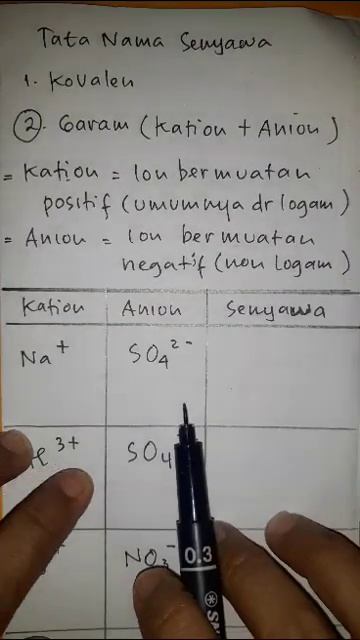 Tata Nama Senyawa
1. Kovalen
2. Garam (Kation + Anion)
= Kation = Ion bermuatan
positif (umumnya dr logam)
= Anion = Ion bermuatan
negatif (non logam)
Kation Anion Senyawa
Na⁺ SO₄²⁻
³⁺ SO₄
NO₃⁻
0.3